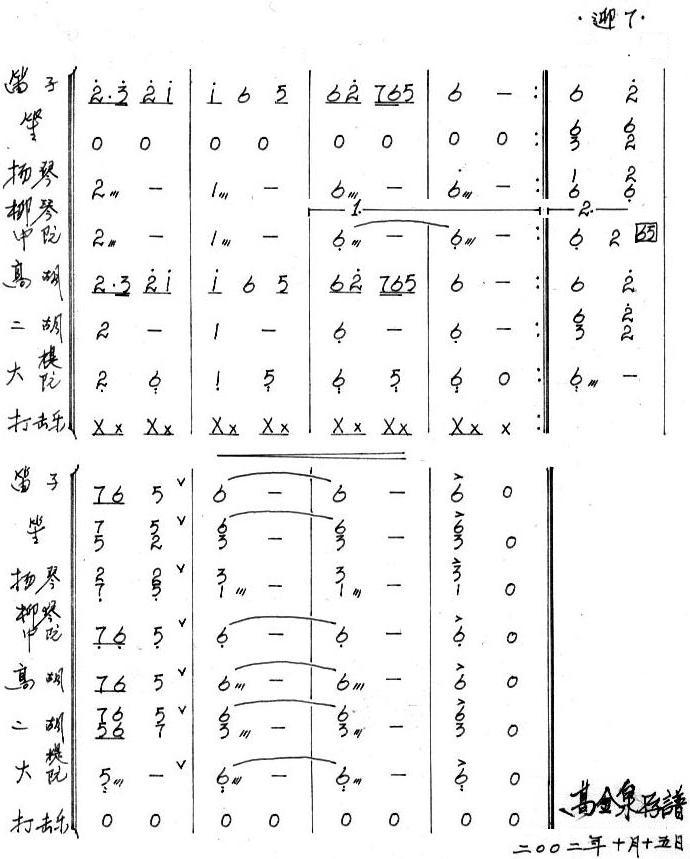 ·迎7·
笛子 2̇·3̇ 2̇1̇ | 1̇ 6 5 | 62̇ 765 | 6 — :‖ 6 2̇
笙 0 0 | 0 0 | 0 0 | 0 0 :‖ 6/3 6/2
扬琴 2̣/// — | 1/// — | 6/// — | 6/// — :‖ 1/6 2/6̣
1. 2.
柳琴
中阮 2/// — | 1/// — | 6̣/// — | 6̣/// — :‖ 6̣ 2 65
高胡 2·3 2̇1̇ | 1̇ 6 5 | 62̇ 765 | 6 — :‖ 6 2̇
二胡 2 — | 1 — | 6̣ — | 6̣ — :‖ 6/3 2̇/2
大提阮 2̣ 6̣ | 1̣ 5̣ | 6̣ 5̣ | 6̣ 0 :‖ 6̣/// —
打击乐 Xx Xx | Xx Xx | Xx Xx | Xx x :‖
笛子 76 5 ∨ | 6 — | 6 — | 6 0
笙 7/5 5/2 ∨ | 6/3 — | 6/3 — | 6/3 0
扬琴 2/7̣ 2/5̣ ∨ | 3/1/// — | 3/1/// — | 3/1 0
柳琴
中阮 7̣6̣ 5̣ ∨ | 6̣ — | 6̣ — | 6̣ 0
高胡 76 5 ∨ | 6/// — | 6/// — | 6 0
二胡 76/56 5/7 ∨ | 6/3/// — | 6/3/// — | 6/3 0
大提阮 5̣/// — ∨ | 6̣/// — | 6̣/// — | 6̣ 0
打击乐 0 0 | 0 0 | 0 0 | 0 0
高金泉存譜
二〇〇二年十月十五日